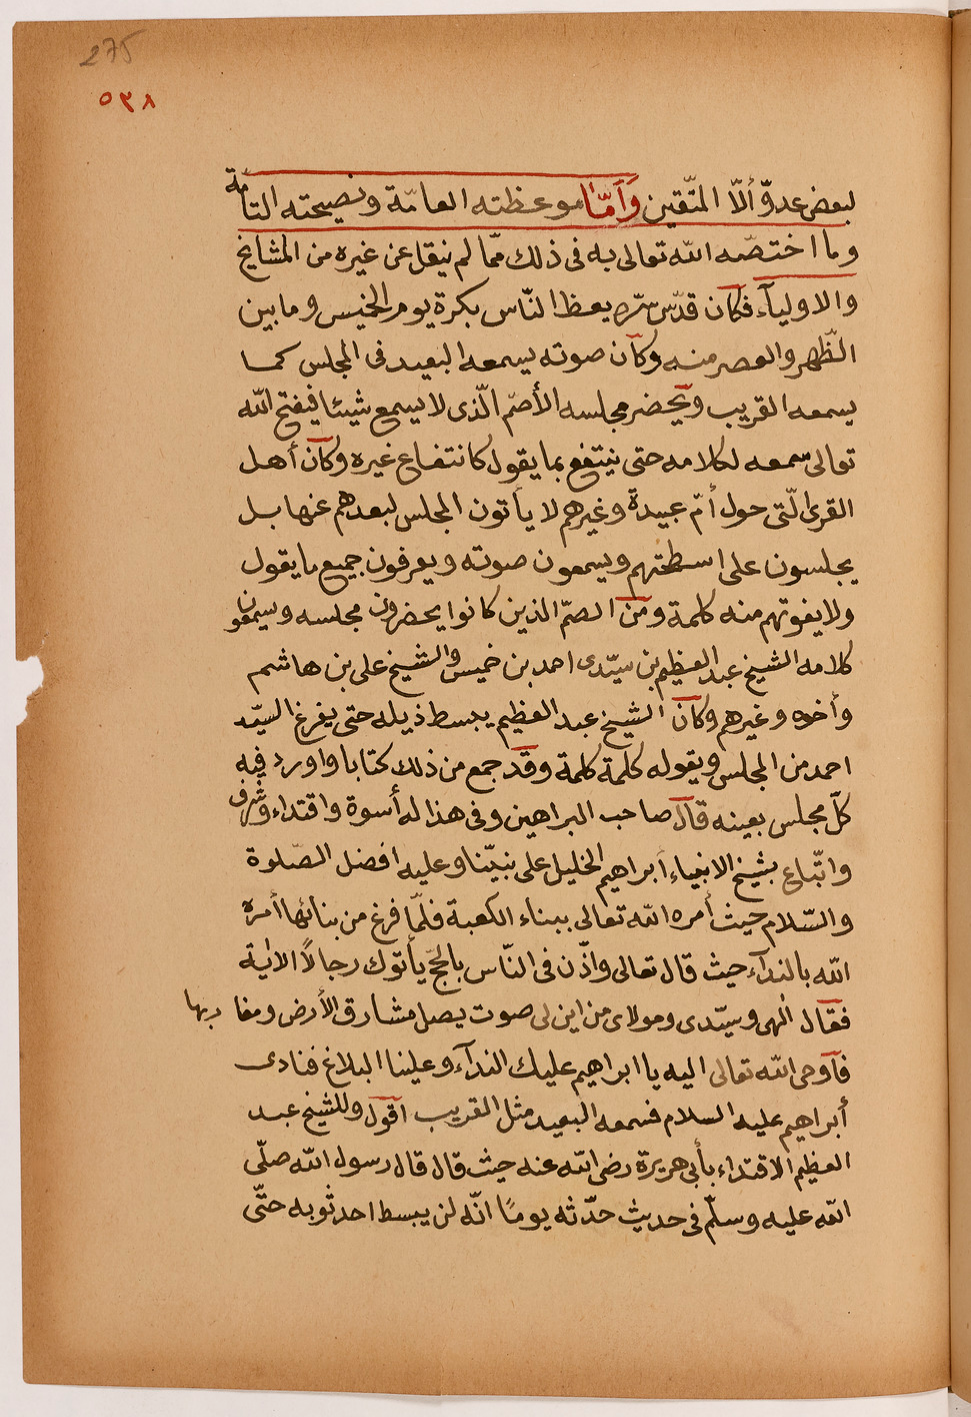 275
٥٣٨
لبعض عدوّ ألّا المتّقين وَأمّا موعظته العامّة ونصيحته التامّة
وما اختصّه الله تعالى به فى ذلك ممّا لم ينقل عن غيره من المشايخ
والاوليآء فكان قدّس سرّه يعظ النّاس بكرة يوم الخميس وما بين
الظّهر والعصر منه وكان صوته يسمعه البعيد فى المجلس كما
يسمعه القريب ويحضر مجلسه الأصمّ الّذى لا يسمع شيئا فيفتح الله
تعالى سمعه لكلامه حتى ينتفع بما يقول كانتفاع غيره وكان أهل
القرى الّتى حول أمّ عبيدة وغيرهم لا يأتون المجلس لبعدهم عنها بل
يجلسون على اسطحتهم ويسمعون صوته ويعرفون جميع ما يقول
ولا يفوتهم منه كلمة ومن الصمّ الذين كانوا يحضرون مجلسه ويسمعون
كلامه الشيخ عبد العظيم بن سيّدى احمد بن خميس والشيخ على بن هاشم
وأخوه وغيرهم وكان الشيخ عبد العظيم يبسط ذيله حتى يفرغ السيّد
احمد من المجلس ويقوله كلمة كلمة وقد جمع من ذلك كتابا واورد فيه
كلّ مجلس بعينه قال صاحب البراهين وفى هذا له أسوة واقتداء وشرف
واتّباع بشيخ الانبياء ابراهيم الخليل على نبيّنا وعليه افضل الصّلوة
والسّلام حيث أمره الله تعالى ببناء الكعبة فلمّا فرغ من بنائها أمره
الله بالندآء حيث قال تعالى واذّن فى النّاس بالحجّ يأتوك رجالاً الاٰية
فقال الٰهى وسيّدى ومولاى من اين لى صوت يصل مشارق الأرض ومغاربها
فآوحى الله تعالى اليه يا ابراهيم عليك الندآء وعلينا البلاغ فنادى
أبراهيم عليه السلام فسمعه البعيد مثل القريب اقول وللشيخ عبد
العظيم الاقتداء بأبى هريرة رضى الله عنه حيث قال قال رسول الله صلّى
الله عليه وسلّم فى حديث حدّثه يومًا انّه لن يبسط احد ثوبه حتّى